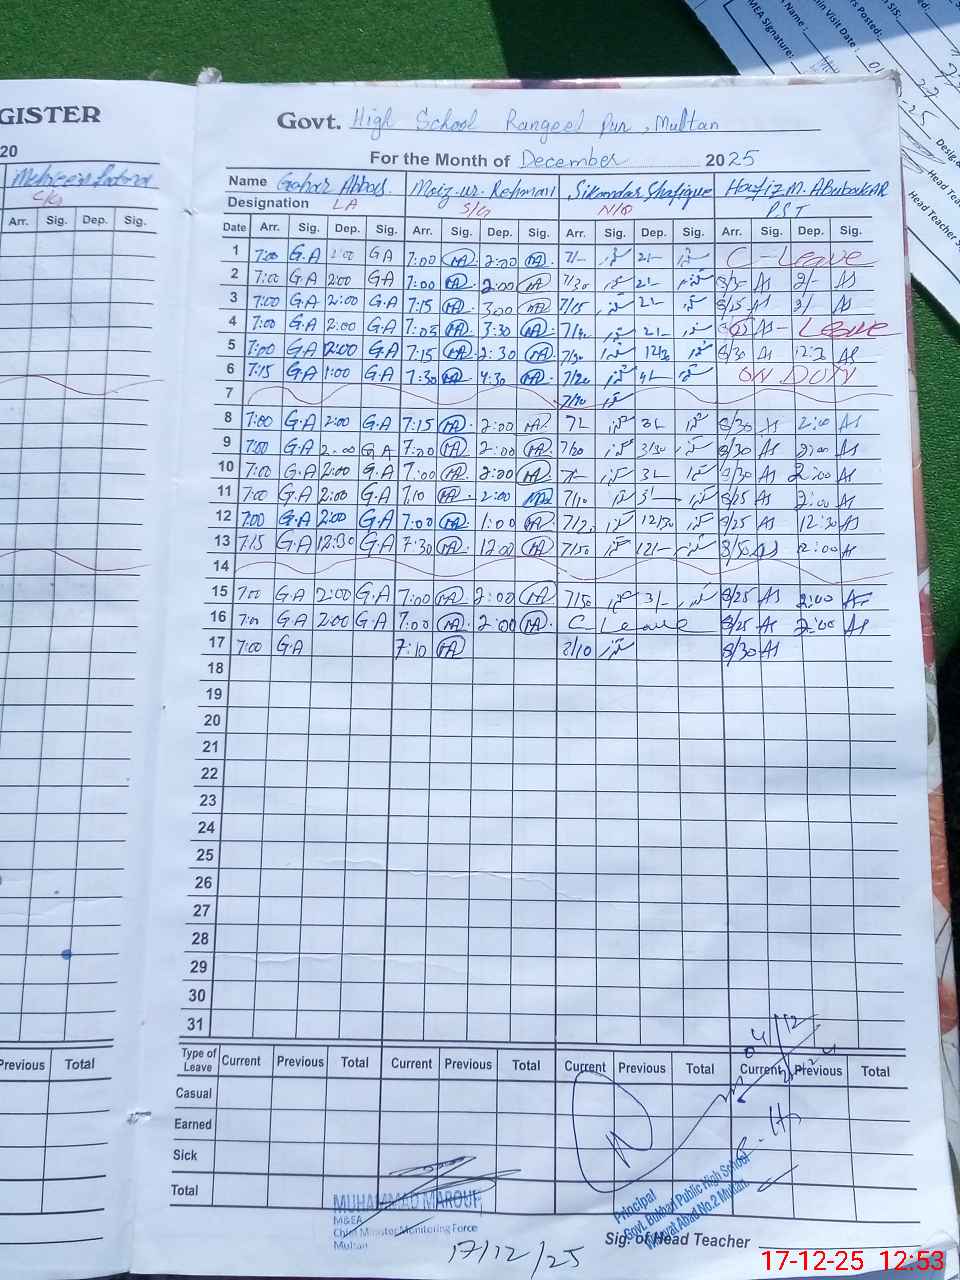 GISTER
20
C/G
Arr. Sig. Dep. Sig.
Previous Total
MEA Signature:
Name :
Visit Date :
Posted:
SIS:
Head Teacher
Govt. High School Rangeel Pur, Multan
For the Month of December 2025
Name Gohar Abbas. Moiz-ur-Rehman Sikandar Shafique Hafiz M. ABubakAR
Designation LA S/G N/Q P.S.T
Date Arr. Sig. Dep. Sig. Arr. Sig. Dep. Sig. Arr. Sig. Dep. Sig. Arr. Sig. Dep. Sig.
1 7:00 G.A 2:00 GA 7:00 MA 2:00 MA 7/- 2/- C - Leave
2 7:00 G.A 2:00 GA 7:00 MA 2:00 MA 7/30 2/- 8/30 AS 2/- AS
3 7:00 G.A 2:00 G.A 7:15 MA 3:00 MA 7/15 2/- 8/25 AS 2/- AS
4 7:00 G.A 2:00 G.A 7:05 MA 3:30 MA 2/- AS - Leave
5 7:00 G.A 2:00 G.A 7:15 MA 2:30 MA 7/30 12/30 8/30 AS 12:30 AS
6 7:15 G.A 1:00 G.A 7:30 MA 4:30 MA 7/20 4/- ON DUTY
7 7/10
8 7:00 G.A 2:00 G.A 7:15 MA 2:00 MA 7/- 3/- 8/30 AS 2:00 AS
9 7:00 G.A 2:00 G.A 7:20 MA 2:00 MA 7/20 3/30 8/30 AS 2:00 AS
10 7:00 G.A 2:00 G.A 7:00 MA 2:00 MA 7/- 3/- 8/30 AS 2:00 AS
11 7:00 G.A 2:00 G.A 7:10 MA 2:00 MA 7/10 3/- 8/25 AS 2:00 AS
12 7:00 G.A 2:00 G.A 7:00 MA 1:00 MA 7/20 12/30 8/25 AS 12:30 AS
13 7:15 G.A 12:30 G.A 7:30 MA 12:00 MA 7/50 12/- 8/50 AS 12:00 AS
14
15 7:00 G.A 2:00 G.A 7:00 MA 2:00 MA 7/50 3/- 8/25 AS 2:00 AS
16 7:00 G.A 2:00 G.A 7:00 MA 2:00 MA C - Leave 8/25 AS 2:00 AS
17 7:00 G.A 7:10 MA 7/10 8/30 AS
18
19
20
21
22
23
24
25
26
27
28
29
30
31
Type of Leave Current Previous Total Current Previous Total Current Previous Total Current Previous Total
Casual
Earned
Sick
Total
MUHAMMAD MAROUF
M&EA
Chief Minister Monitoring Force
Multan
17/12/25
Principal
Govt. Bukhari Public High School
Wilayat Abad No.2 Multan
Sig. of Head Teacher
17-12-25 12:53